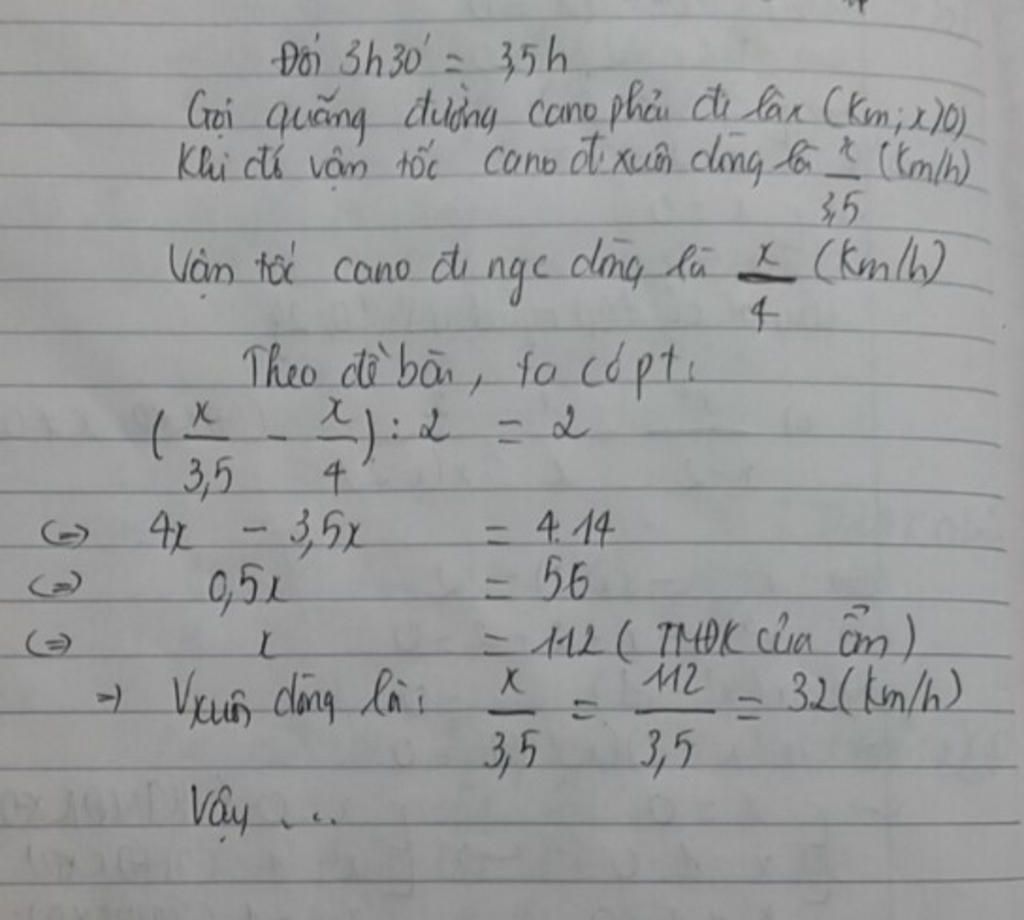 Đổi 3h30' = 3,5h
Gọi quãng đường cano phải đi là x (km; x>0)
Khi đó vận tốc cano đi xuôi dòng là x/3,5 (km/h)
Vận tốc cano đi ngc dòng là x/4 (km/h)
Theo đề bài, ta có pt:
(x/3,5 - x/4) : 2 = 2
(=) 4x - 3,5x = 4.14
(=) 0,5x = 56
(=) x = 112 (TMĐK của ẩn)
=) Vxuôi dòng là: x/3,5 = 112/3,5 = 32 (km/h)
Vậy ...